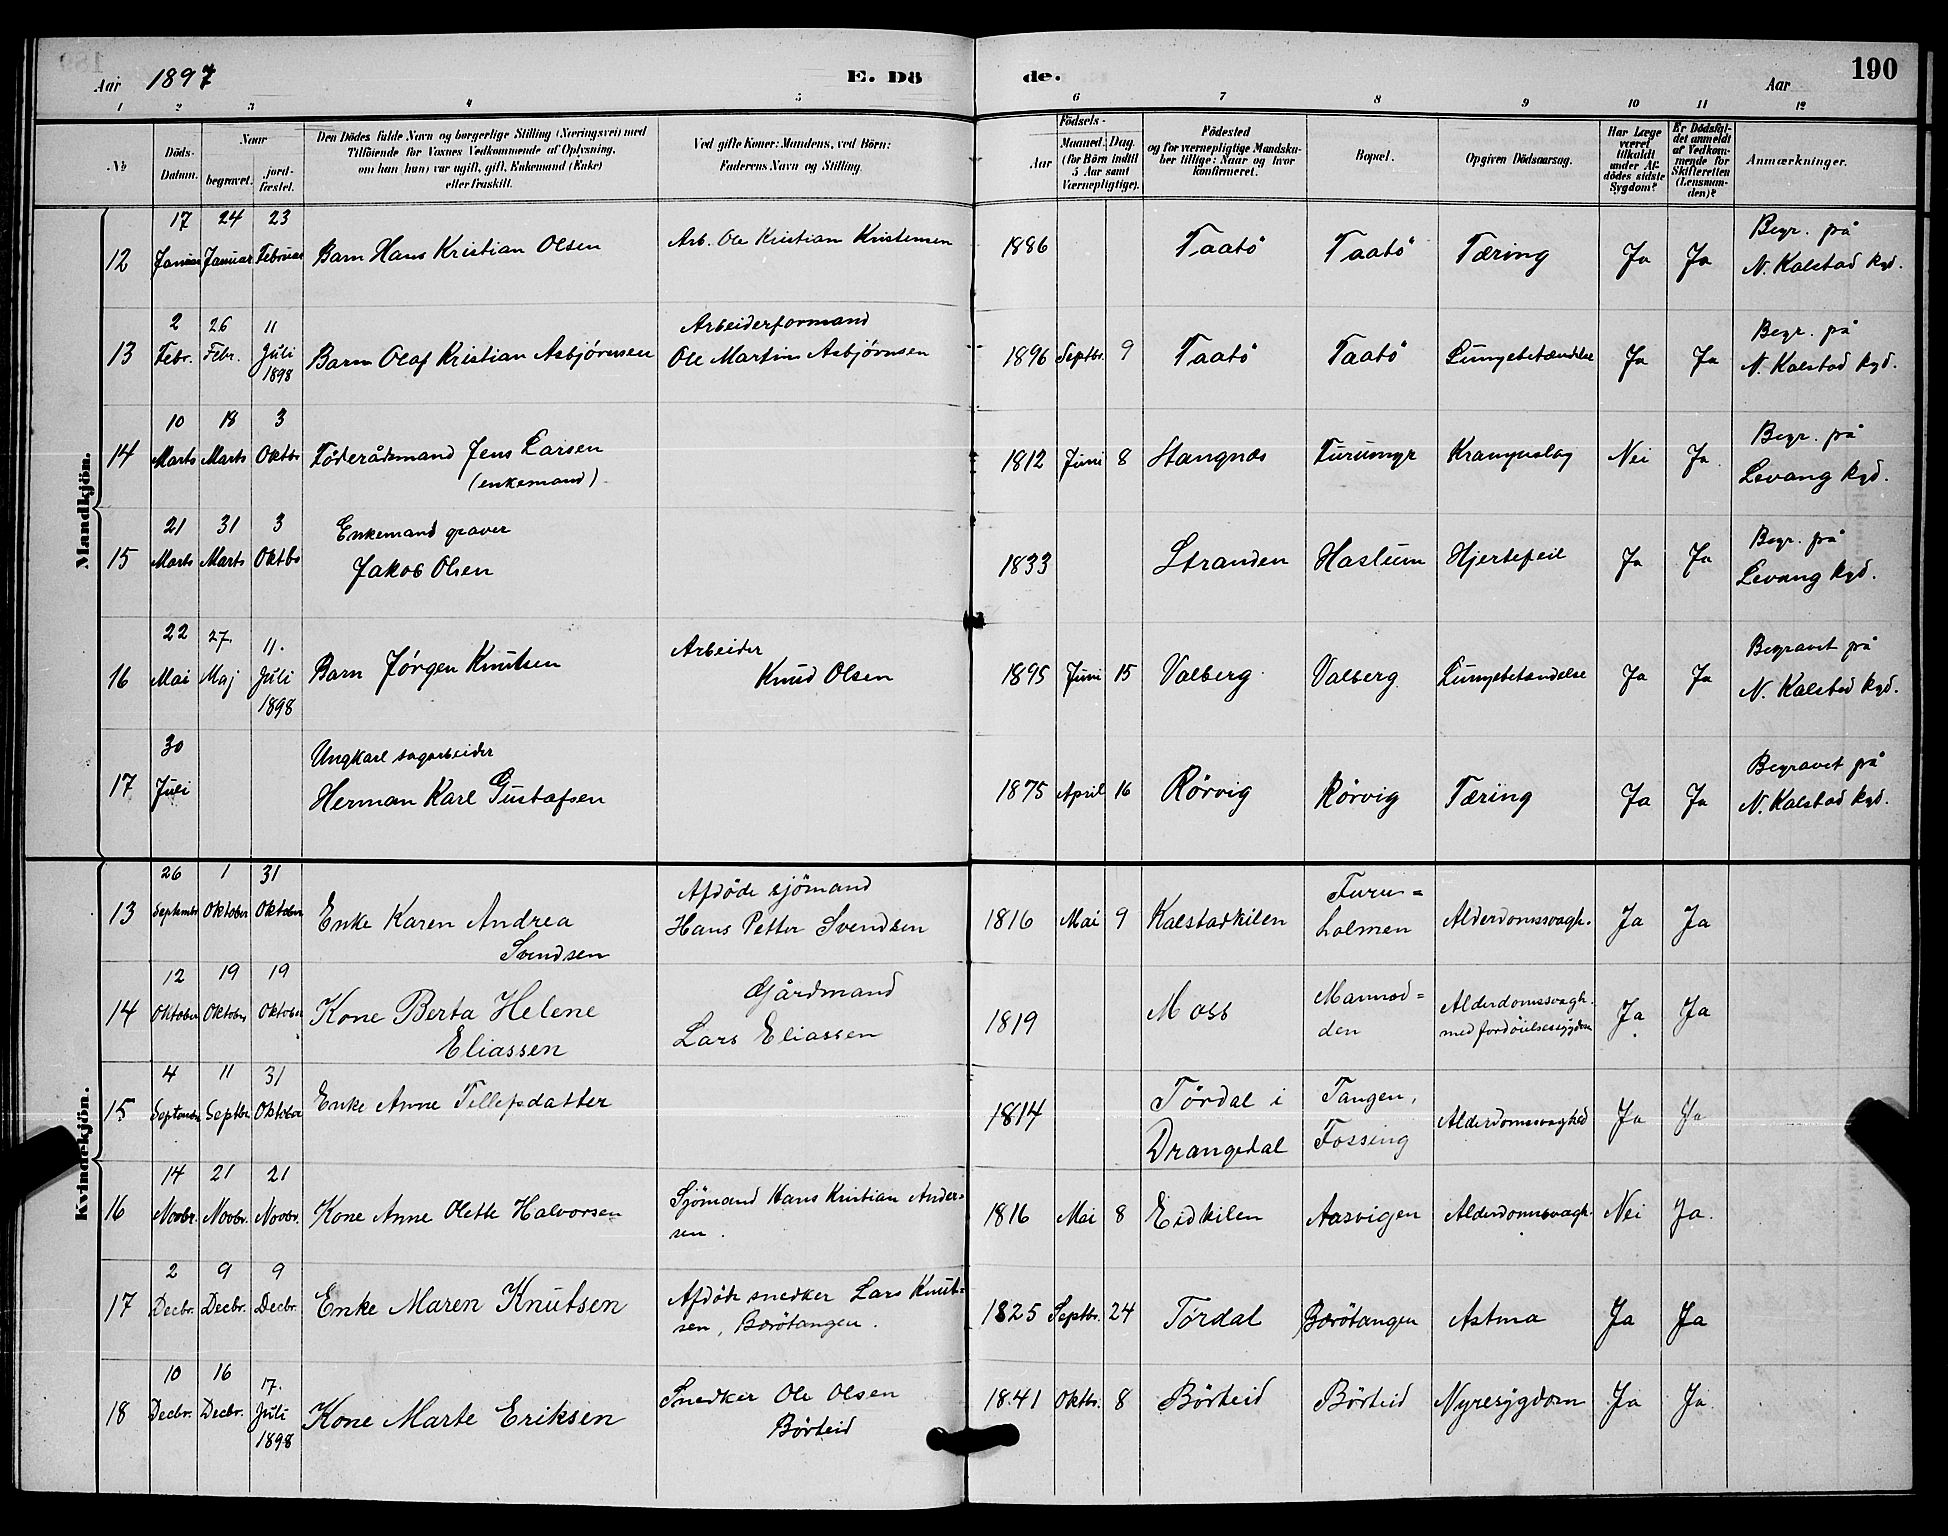 Aar 1897 E. Dö de. Aar 190
1 2 3 4 5 6 7 8 9 10 11 12
No
Döds-Datum.
Naar
begravet.
jord-fæstet.
Den Dödes fulde Navn og borgerlige Stilling (Næringsvei) med
Tilföiende for Voxnes Vedkommende af Oplysning,
om han (hun) var ugift, gift, Enkemand (Enke)
eller fraskilt.
Ved gifte Koner: Mandens, ved Börn:
Faderens Navn og Stilling.
Födsels-
Aar
Maaned. Dag.
(for Börn indtil
5 Aar samt
Værnepligtige).
Födested
og for værnepligtige Mandska-
ber tillige: Naar og hvor
konfirmeret.
Bopæl.
Opgiven Dödsaarsag.
Har Læge
været
tilkaldt
under Af-
dödes sidste
Sygdom?
Er Dödsfal-
det anmeldt
af Vedkom-
mende for
Skifteretten
(Lensman-
den)?
Anmærkninger.
Mandkjön.
12 17 Januar 24 Januar 23 Februar Barn Hans Kristian Olsen Arb. Ole Kristian Kristensen 1886 Taatö Taatö Tæring Ja Ja Begr. på N. Kalstad kgd.
13 2 Febr. 26 Febr. 11 Juli 1898 Barn Olaf Kristian Asbjörnsen Arbeiderformand Ole Martin Asbjörnsen 1896 Septbr. 9 Taatö Taatö Lungebetændelse Ja Ja Begr. på N. Kalstad kgd.
14 10 Marts 18 Marts 3 Oktbr Föderådsmand Jens Larsen (enkemand) 1812 Juni 8 Stangnæs Furumyr Krampeslag Nei Ja Begr. på Levang kgd.
15 21 Marts 31 Marts 3 Oktbr Enkemand graver Jakob Olsen 1833 Stranden Haslum Hjertefeil Ja Ja Begr. på Levang kgd.
16 22 Mai 27. Maj 11. Juli 1898 Barn Jörgen Knutsen Arbeider Knud Olsen 1895 Juni 15 Valberg Valberg Lungebetændelse Ja Ja Begravet på N. Kalstad kgd.
17 30 Juli Ungkarl sagarbeider Herman Karl Gustafsen 1875 April 16 Rörvig Rörvig Tæring Ja Ja Begravet på N. Kalstad kgd.
Kvindekjön.
13 26 September 1 Oktober 31 Oktober Enke Karen Andrea Svendsen Afdöde sjömand Hans Petter Svendsen 1816 Mai 9 Kalstadkilen Furu=holmen Alderdomssvagh. Ja Ja
14 12 Oktober 19 Oktober 19 Oktober Kone Berta Helene Eliassen Gårdmand Lars Eliassen 1819 Moss Marmod=den Alderdomssvagh. med fordöielsessygdom Ja Ja
15 4 September 11 Septbr 31 Oktober Enke Anne Tellefsdatter 1814 Tördal i Drangedal Tangen, Fossing Alderdomssvaghed Ja Ja
16 14 Novbr. 21 Novbr. 21 Novbr. Kone Anne Olette Halvorsen Sjömand Hans Kristian Ander=sen. 1816 Mai 8 Eidkilen Aasvigen Alderdomssvagh. Nei Ja.
17 2 Decbr. 9 Decbr. 9 Decbr. Enke Maren Knutsen Afdöde snedker Lars Knut=sen, Barötangen. 1825 Septbr. 24 Tördal Barötangen Astma Ja Ja
18 10 Decbr. 16 Decbr. 17. Juli 1898 Kone Marte Eriksen Snedker Ole Olsen Börteid 1841 Oktbr. 8 Börteid Börteid Nyresygdom Ja Ja